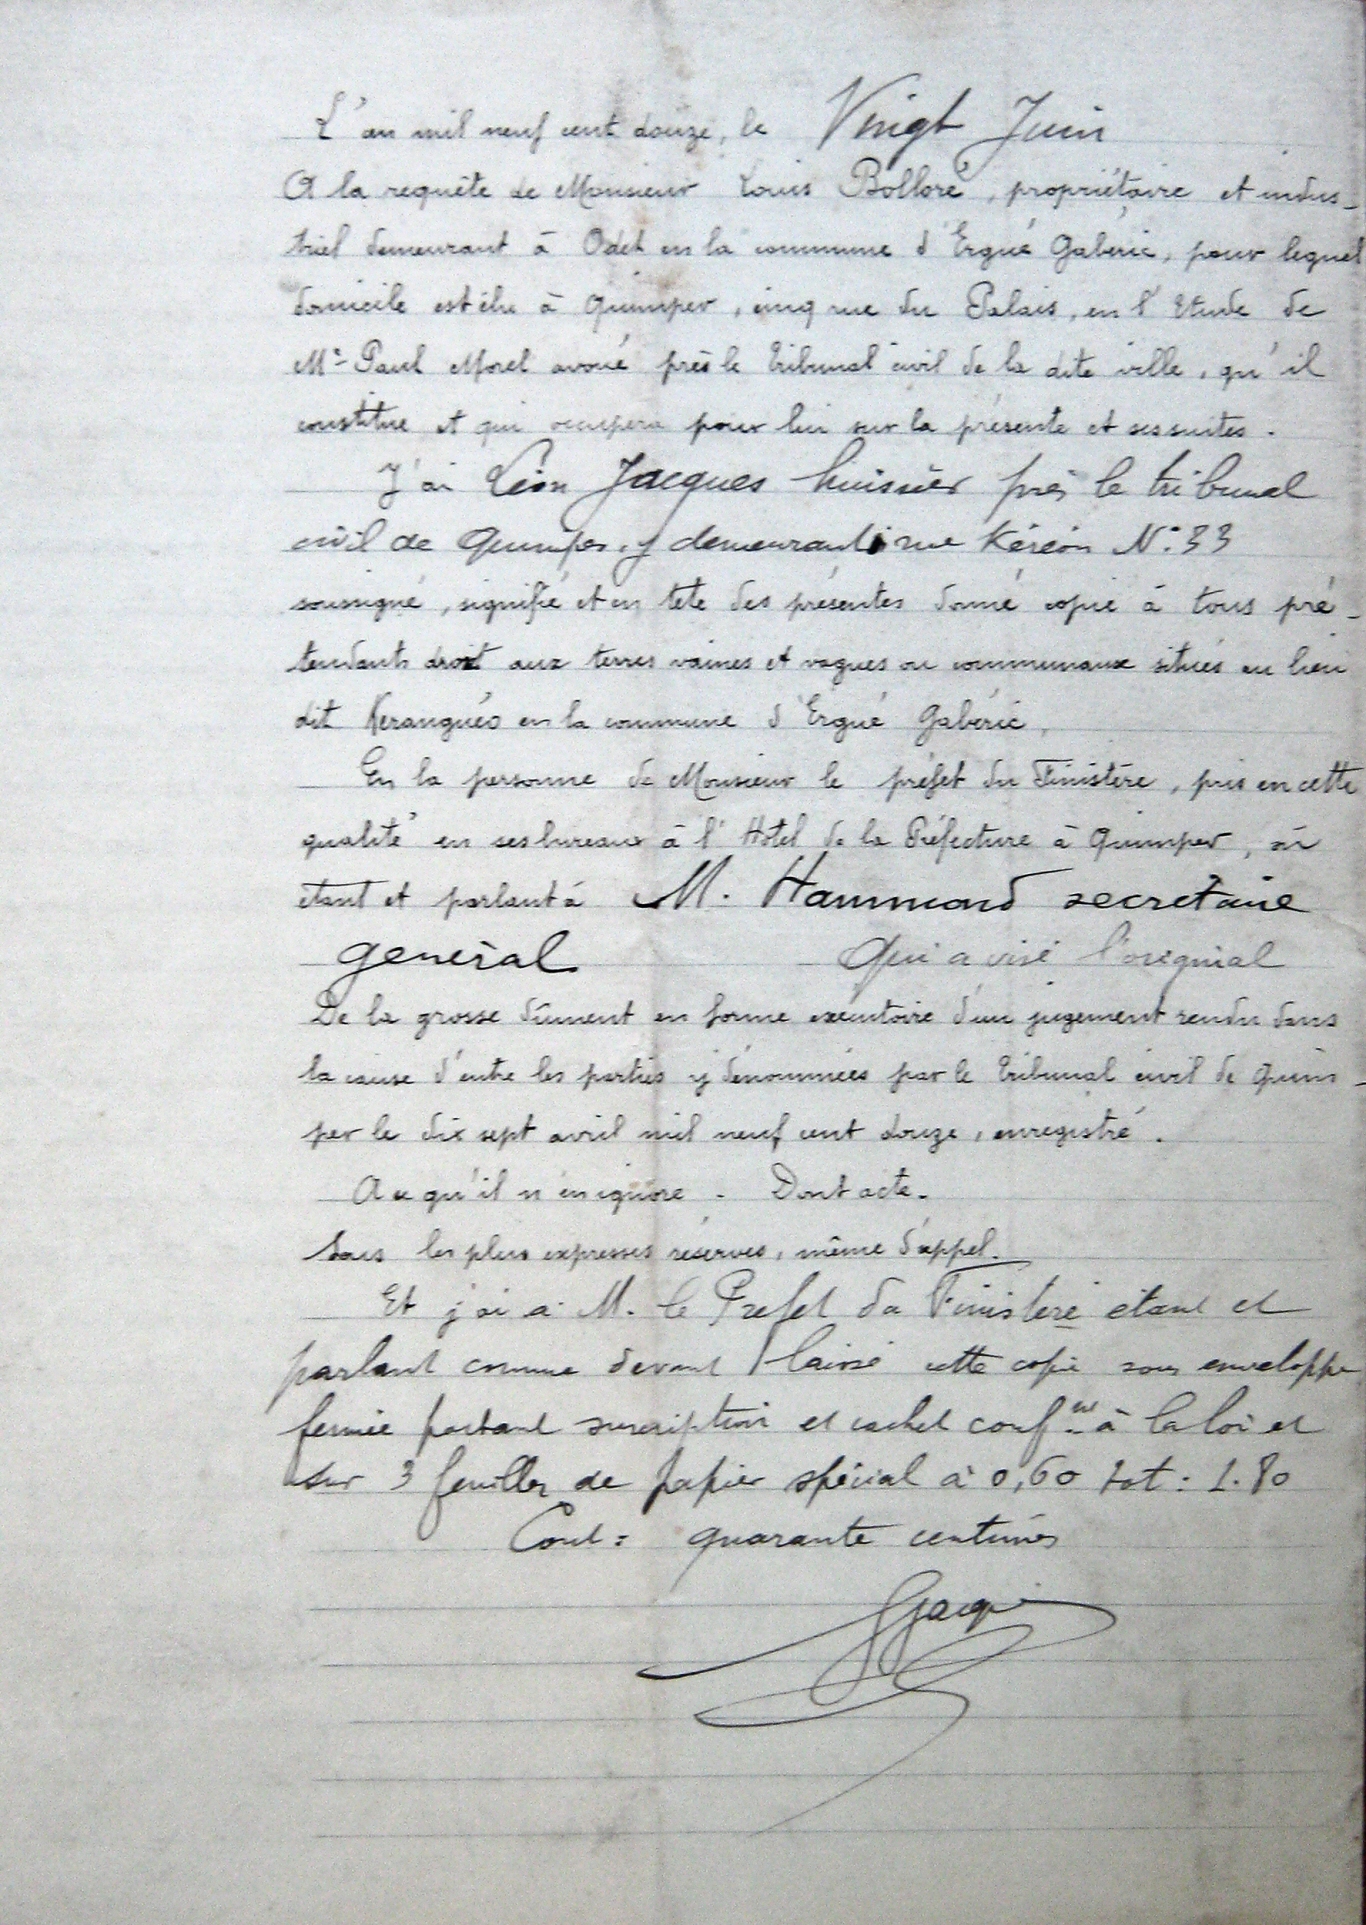 L'an mil neuf cent douze, le Vingt Juin
A la requête de Monsieur Louis Bolloré, propriétaire et indus-
triel demeurant à Odet en la commune d'Ergué Gabéric, pour lequel
domicile est élu à Quimper, cinq rue du Palais, en l'Etude de
Me Paul Morel avoué près le tribunal civil de la dite ville, qu'il
constitue et qui occupera pour lui sur la présente et ses suites.
J'ai Léon Jacques huissier près le tribunal
civil de Quimper, y demeurant rue Kéréon No 33
soussigné, signifié et en tête des présentes donné copie à tous pré-
tendants droit aux terres vaines et vagues ou communaux situés au lieu
dit Keranguéo en la commune d'Ergué Gabéric,
En la personne de Monsieur le préfet du Finistère, pris en cette
qualité en ses bureaux à l'Hôtel de la Préfecture à Quimper, où
étant et parlant à M. Hammond secrétaire
général Qui a visé l'original
De la grosse dûment en forme exécutoire d'un jugement rendu dans
la cause d'entre les parties y dénommées par le tribunal civil de Quim-
per le dix sept avril mil neuf cent douze, enregistré.
A ce qu'il n'en ignore. Dont acte.
Sous les plus expresses réserves, même d'appel.
Et j'ai à M. le Préfet du Finistère étant et
parlant comme devant laissé cette copie sous enveloppe
fermée portant suscription et cachet conf.nt à la loi et
sur 3 feuilles de papier spécial à 0,60 tot : 1.80
Cout : quarante centimes
LJacques